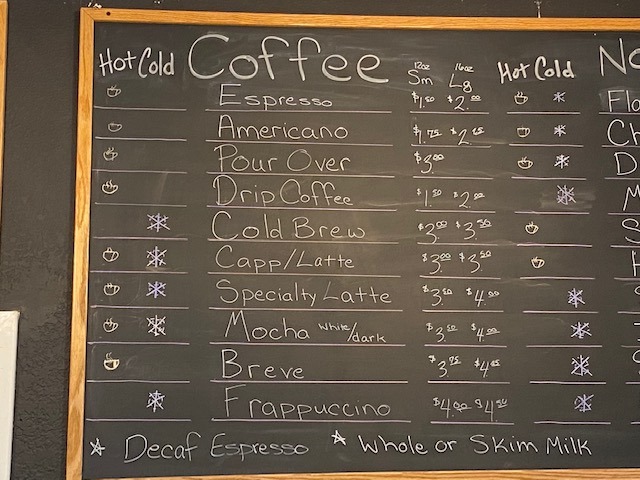 Hot Cold Coffee 12oz Sm 16oz Lg Hot Cold
Espresso $1.50 $2.00
Americano $1.75
Pour Over $3.00
Drip Coffee $1.50 $2.00
Cold Brew $3.00 $3.50
Capp/Latte $3.00 $3.50
Specialty Latte $3.50 $4.00
Mocha White/dark $3.50 $4.00
Breve $3.75
Frappuccino $4.00 $4.50
Decaf Espresso Whole or Skim Milk